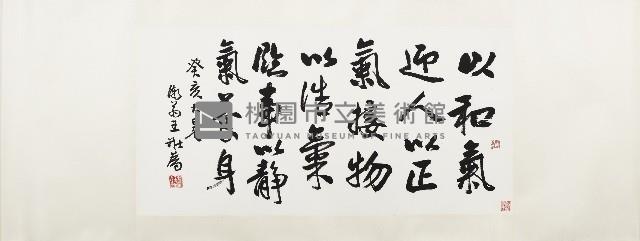 以和氣
迎人以正
氣接物
以浩氣
臨事以靜
氣養身
癸亥
漸翁王壯為
桃園市立美術館
TAOYUAN MUSEUM OF FINE ARTS